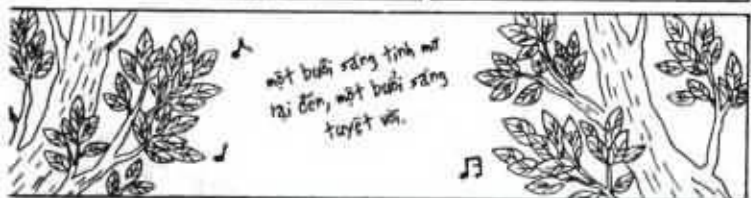 một buổi sáng tinh mơ
lại đến, một buổi sáng
tuyệt vời.